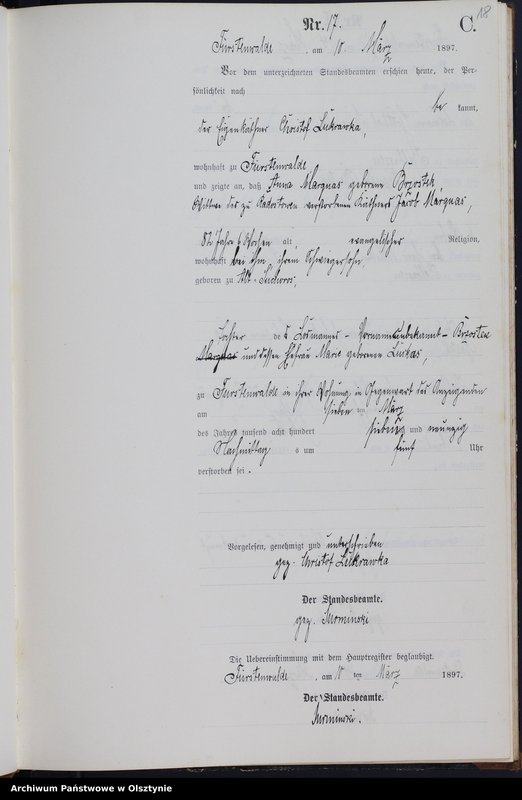 18
Nr. 17.
C.
Fürstenwalde, am 10 März 1897.
Vor dem unterzeichneten Standesbeamten erschien heute, der Per-
sönlichkeit nach
be kannt,
der Eigenkäthner Christof Lukrawka,
wohnhaft zu Fürstenwalde
und zeigte an, daß Anna Marguas geborene Brzostek,
Wittwe des zu verstorbenen Käthners Jacob Marguas,
82 Jahre 6 Wochen alt, evangelischer Religion,
wohnhaft bei ihm, ihrem Schwiegersohn,
geboren zu Alt-Suchoros,
Tochter des Losmannes - Vorname unbekannt - Brzostek
Marguas und dessen Ehefrau Marie geborene Luikas,
zu Fürstenwalde in ihrer Wohnung, in Gegenwart des Anzeigenden
am sieben ten März
des Jahres tausend acht hundert siebenzig und neunzig
Nachmittag s um fünf Uhr
verstorben sei.
Vorgelesen, genehmigt und unterschrieben
gez. Christof Lukrawka
Der Standesbeamte.
gez. Mrominski
Die Uebereinstimmung mit dem Hauptregister beglaubigt.
Fürstenwalde, am 10 ten März 1897.
Der Standesbeamte.
Mrominski.
Archiwum Państwowe w Olsztynie